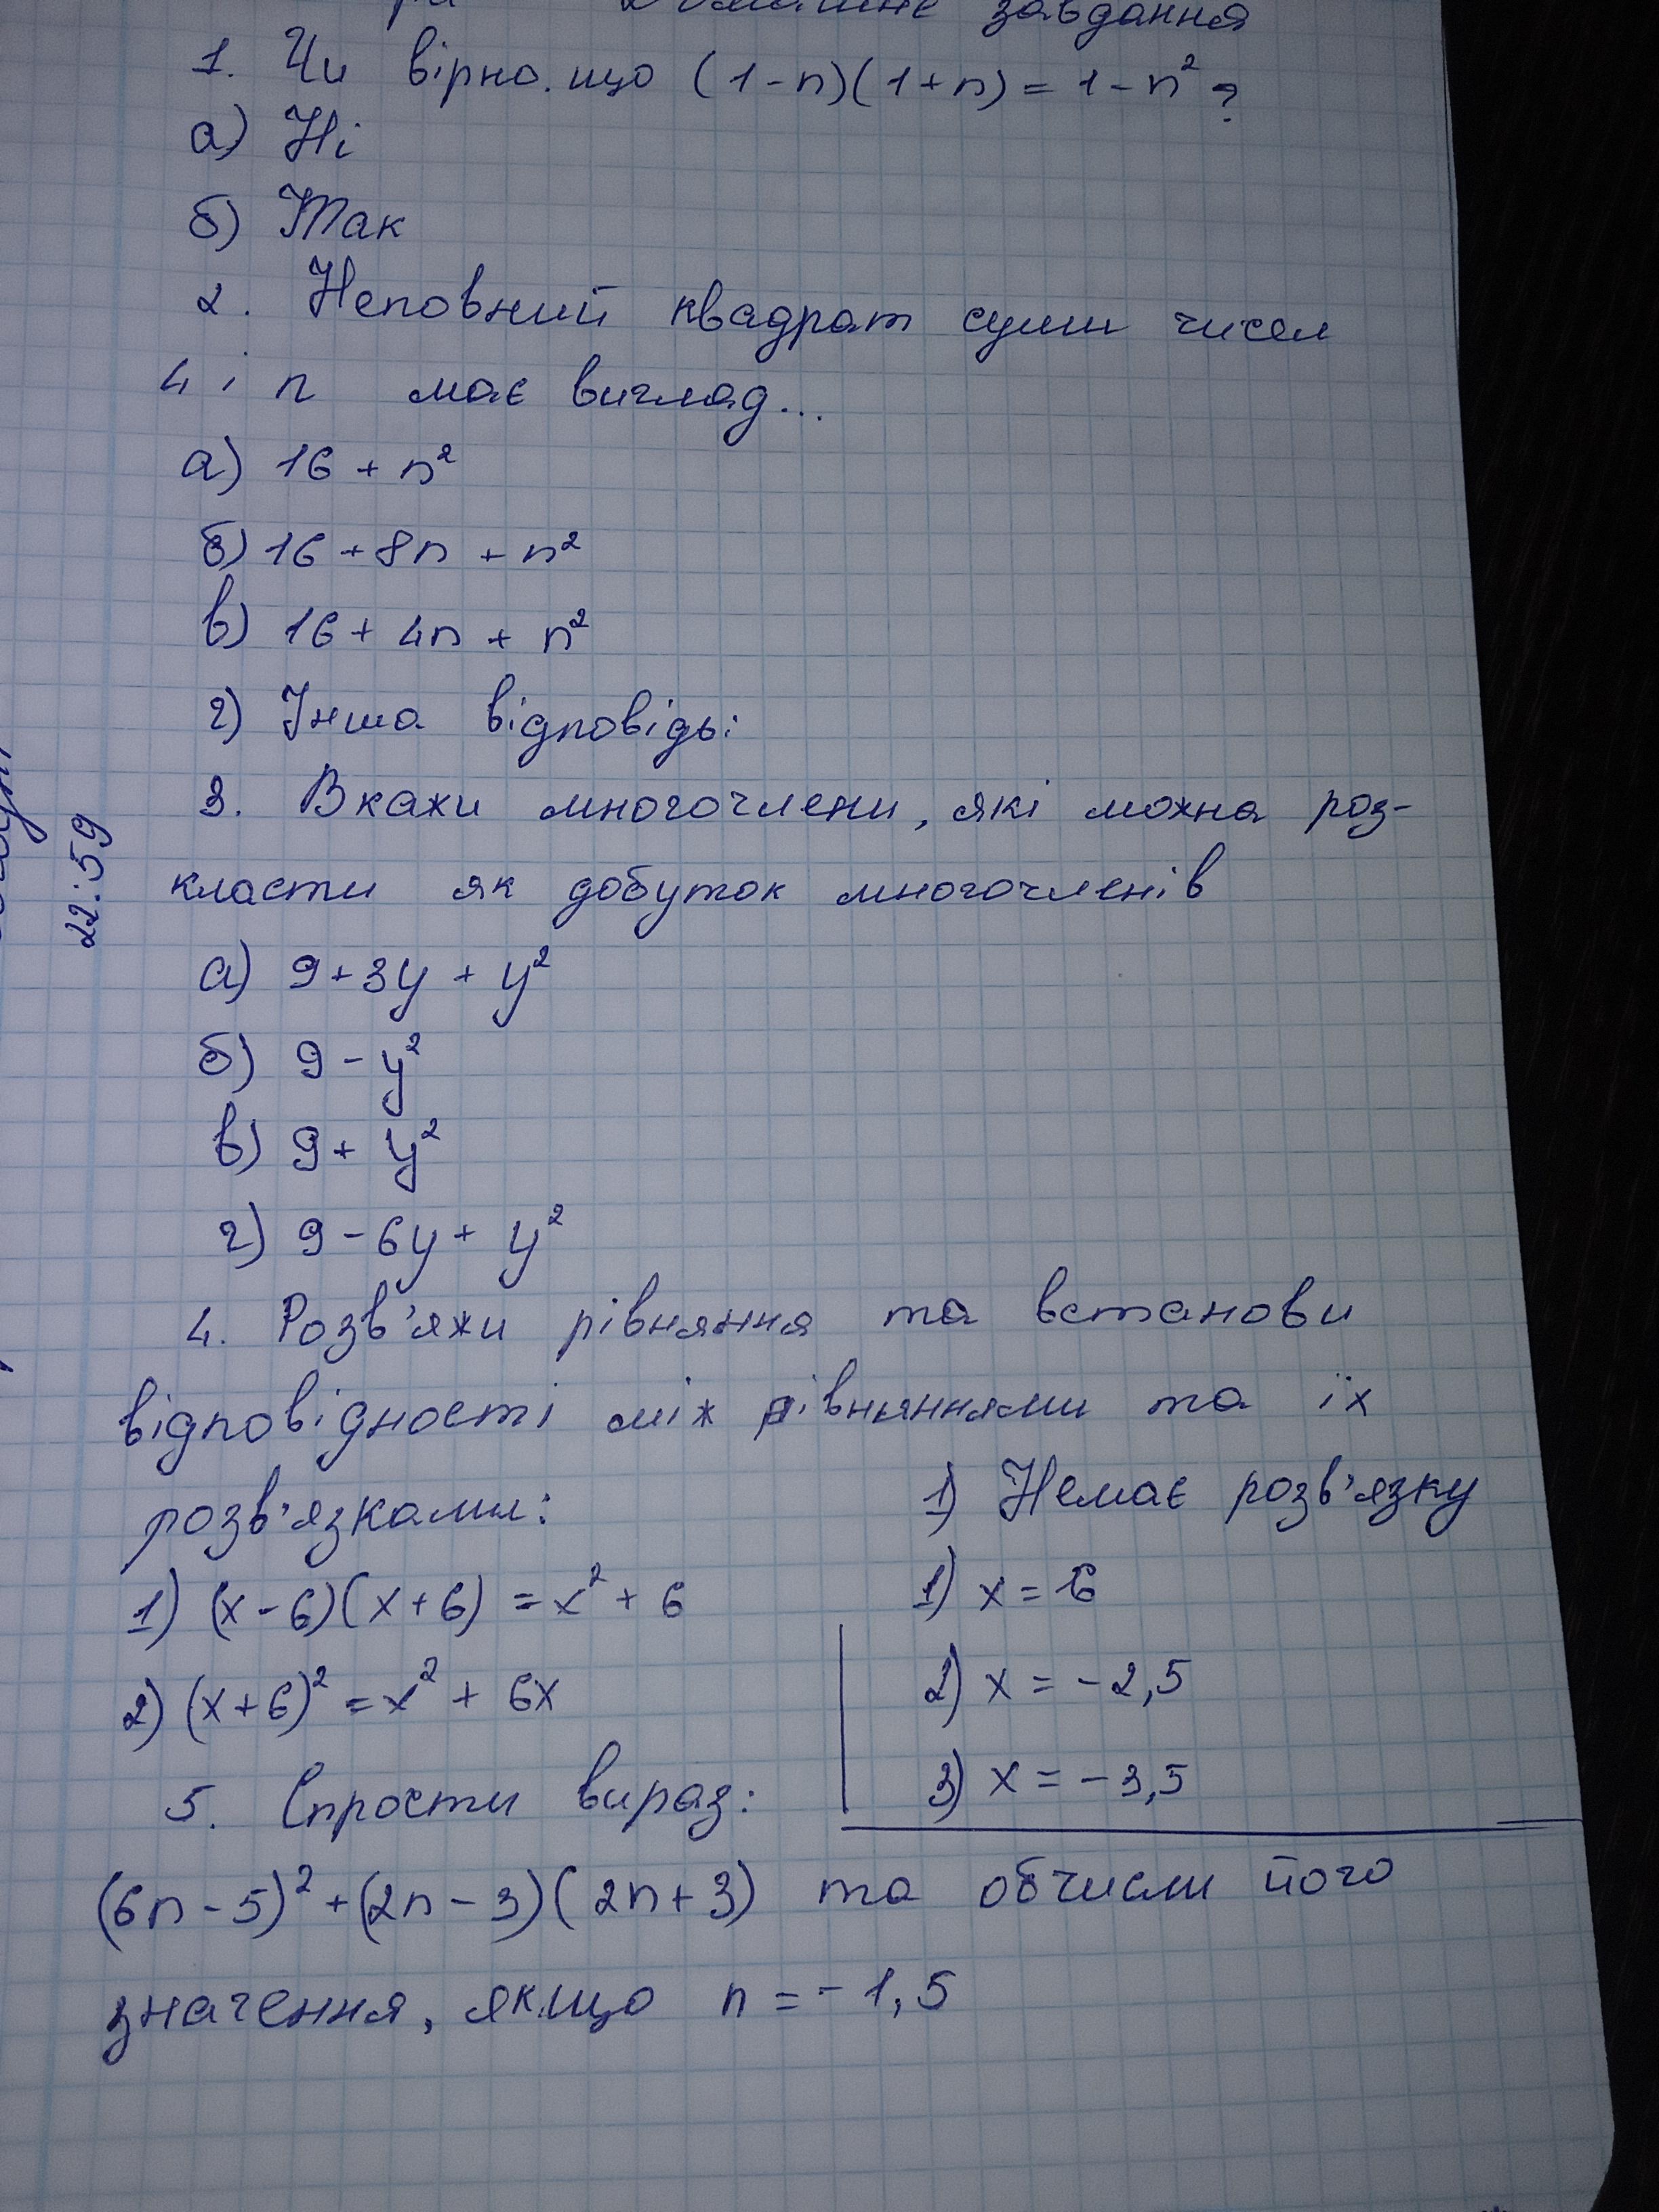 Домашнє завдання
1. Чи вірно, що (1-n)(1+n) = 1-n² ?
а) Ні
б) Так
2. Неповний квадрат суми чисел
4 і n має виглад...
а) 16 + n²
б) 16 + 8n + n²
в) 16 + 4n + n²
г) Інша відповідь:
3. Вкажи многочлени, які можна роз-
класти як добуток многочленів
22:59
а) 9 + 3y + y²
б) 9 - y²
в) 9 + y²
г) 9 - 6y + y²
4. Розв'яжи рівняння та встанови
відповідності між рівняннями та їх
розв'язками:
1) Немає розв'язку
1) (x-6)(x+6) = x² + 6
1) x = 6
2) (x+6)² = x² + 6x
2) x = -2,5
3) x = -3,5
5. Спрости вираз:
(6n-5)² + (2n-3)(2n+3) та обчисли його
значення, якщо n = -1,5